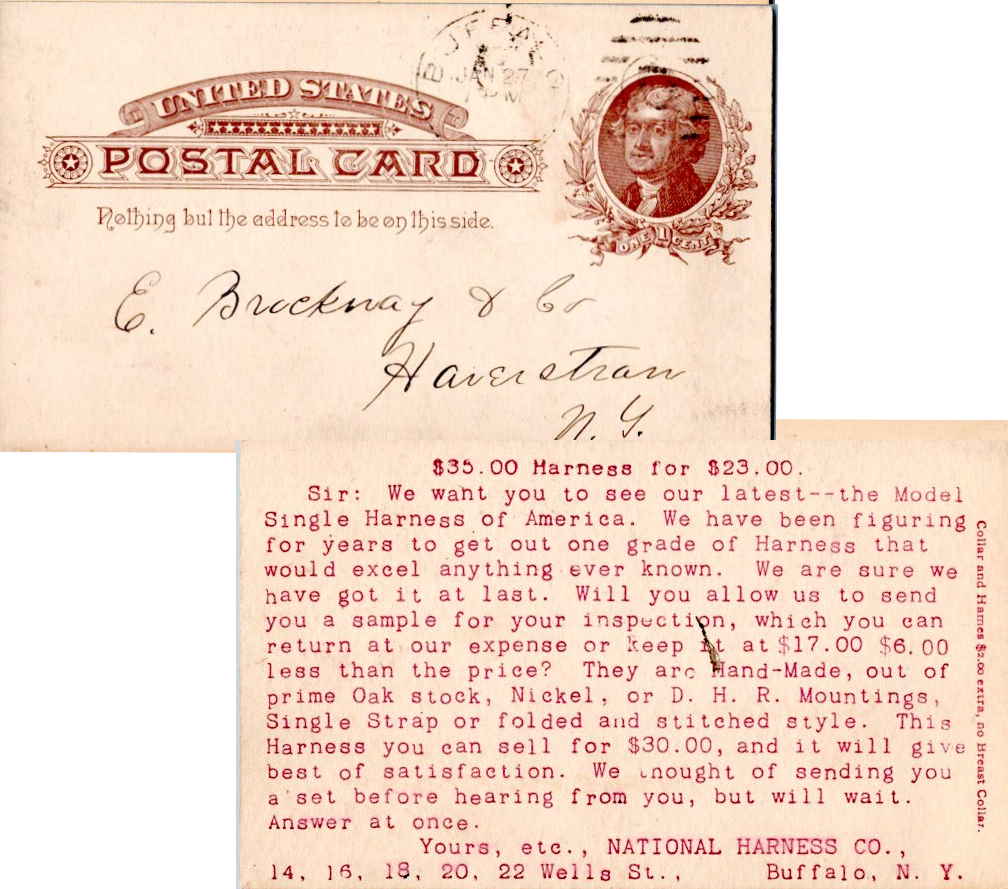 BUFFALO
JAN 27
PM
UNITED STATES
POSTAL CARD
Nothing but the address to be on this side.
ONE 1 CENT
E. Brockway & Co
Haverstraw
N. Y.
$35.00 Harness for $23.00.
Sir: We want you to see our latest--the Model
Single Harness of America. We have been figuring
for years to get out one grade of Harness that
would excel anything ever known. We are sure we
have got it at last. Will you allow us to send
you a sample for your inspection, which you can
return at our expense or keep it at $17.00 $6.00
less than the price? They are Hand-Made, out of
prime Oak stock, Nickel, or D. H. R. Mountings,
Single Strap or folded and stitched style. This
Harness you can sell for $30.00, and it will give
best of satisfaction. We thought of sending you
a set before hearing from you, but will wait.
Answer at once.
Yours, etc., NATIONAL HARNESS CO.,
14, 16, 18, 20, 22 Wells St., Buffalo, N. Y.
Collar and Hames $2.00 extra, no Breast Collar.